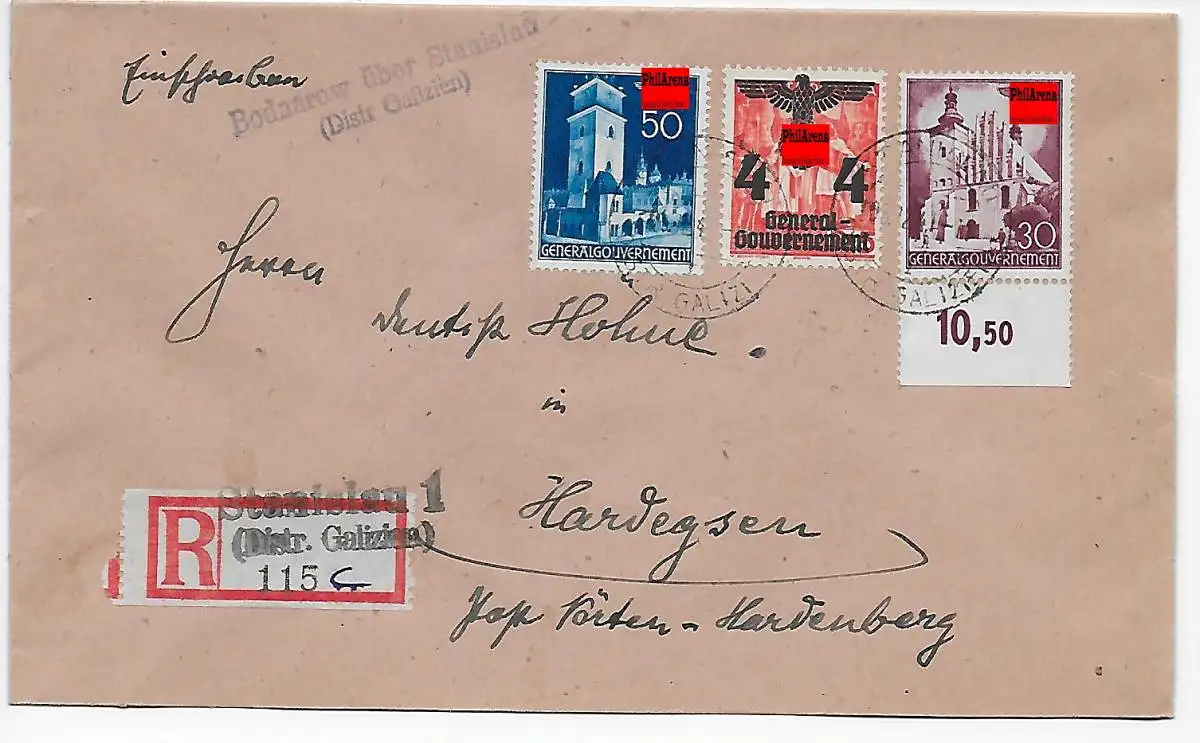 Einschreiben
Bodnarow über Stanislau
(Distr Galizien)
PhilArena
50
GENERALGOUVERNEMENT
PhilArena
4 4
General-
Gouvernement
PhilArena
30
GENERALGOUVERNEMENT
10,50
GALIZI
GALIZIEN
Herrn
Hohne.
in
Hardegsen
Post Nörten-Hardenberg
R
Stanislau 1
(Distr. Galizien)
115 c